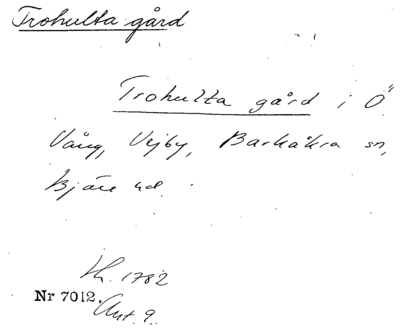 Trohulta gård
Trohulta gård i Ö.
Vång, Vejby, Barkåkra sn,
Bjäre hd.
Lh. 1782
Nr 7012.
Ant. 9.